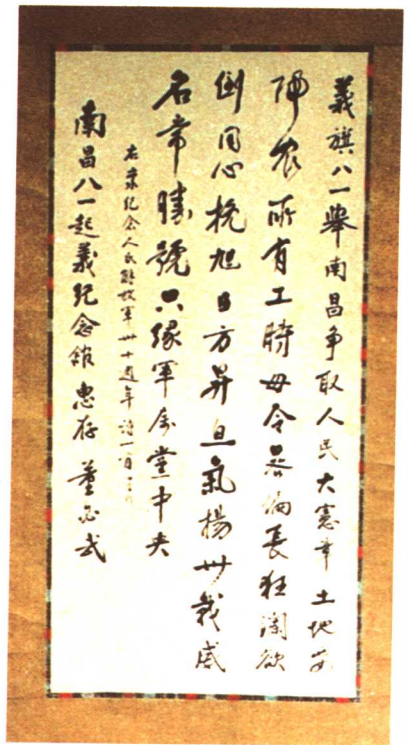 義旗八一舉南昌争取人民大憲章土地必
歸農所有工時毋令畧偏長狂瀾欲
倒同心挽旭日方昇正氣揚卅載威
名常勝號只緣軍屬黨中央
右录紀念人民解放軍卅十週年詩一首
南昌八一起義紀念館惠存 董必武